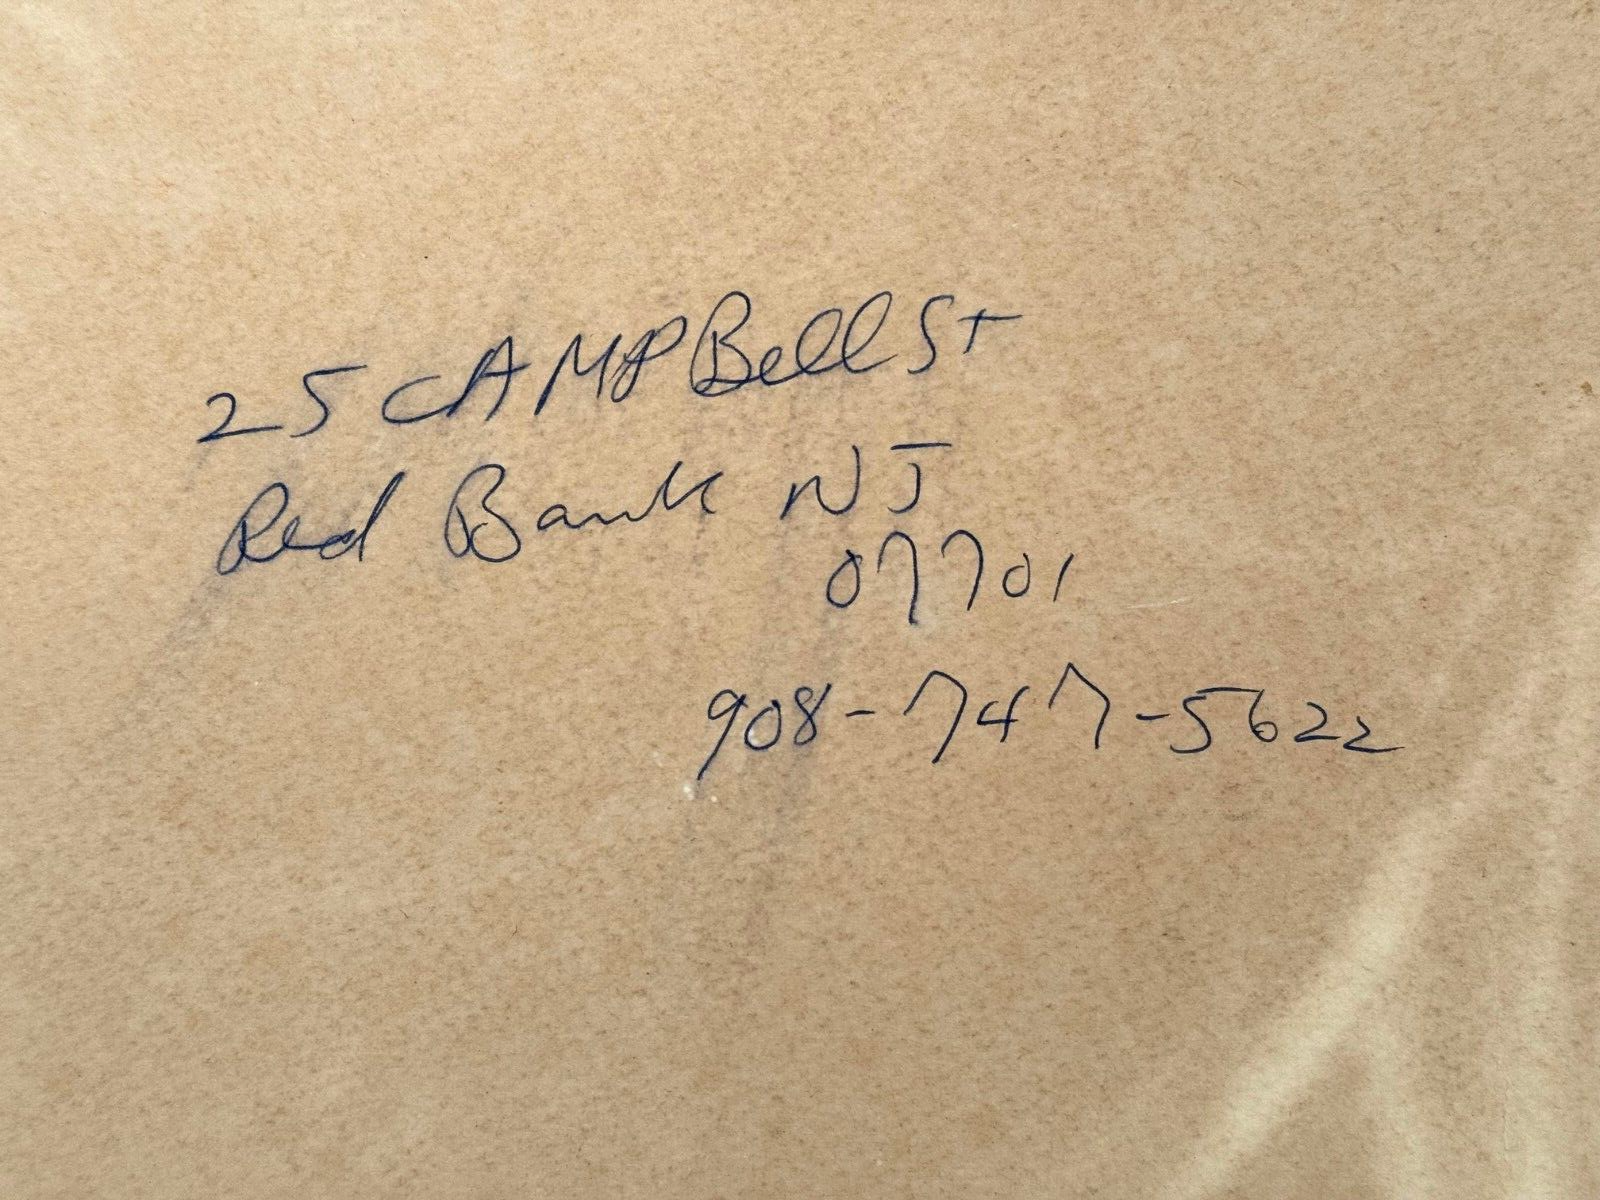 25 CAMPBell St
Red Bank NJ
07701
908-747-5622